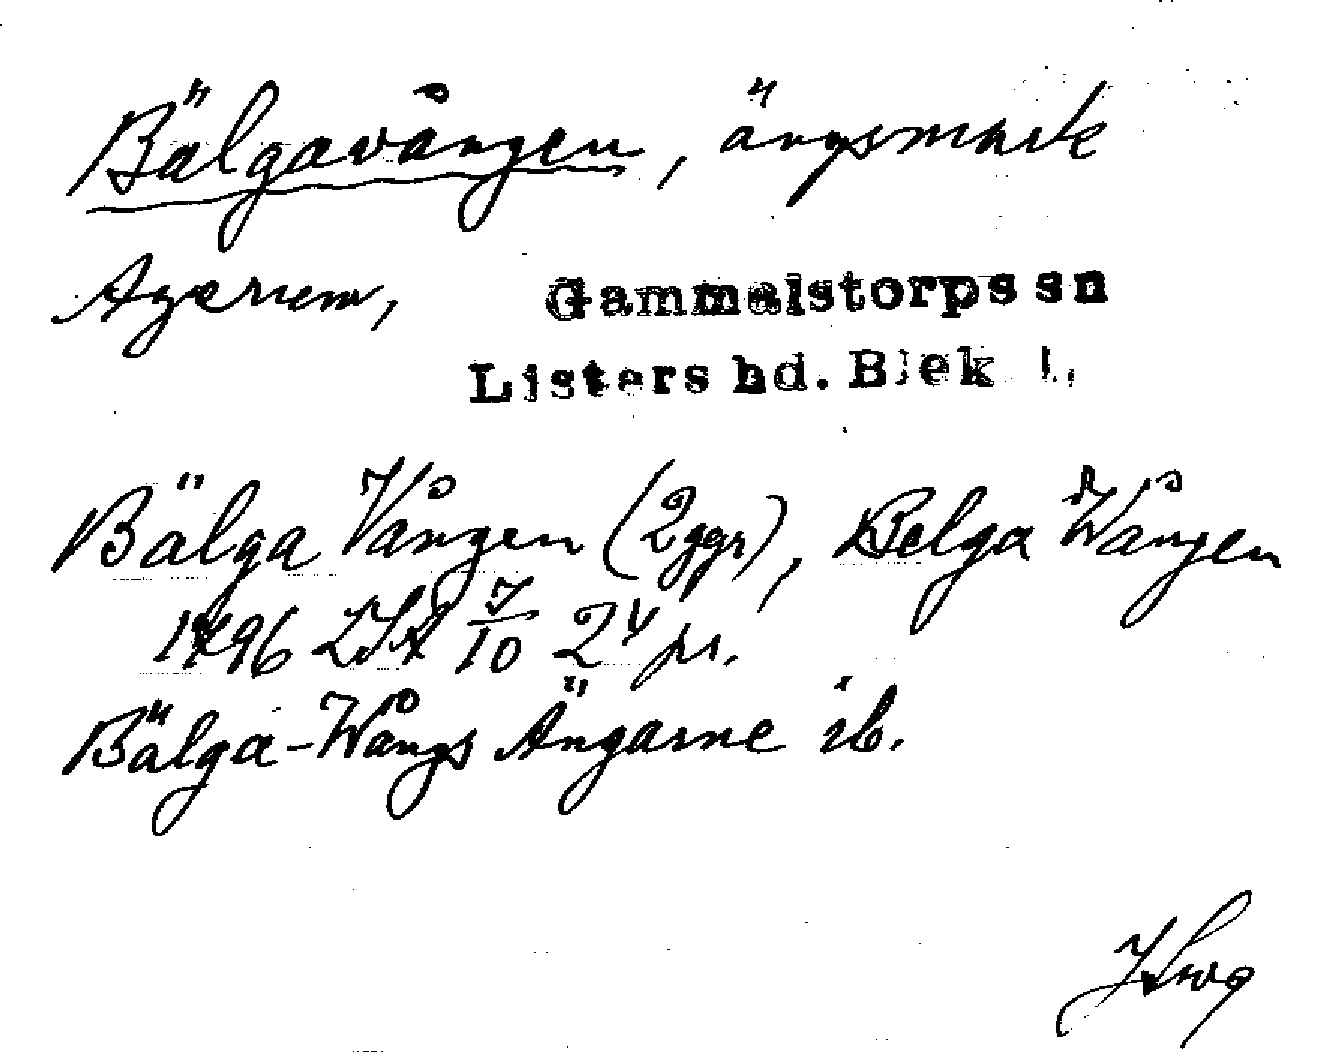 Bälgavången, ängsmark
Agerum, Gammalstorps sn
Listers hd. Blek l.
Bälga Vången (2ggr), Belga Wången
1796 LSA 7/10 24 pr.
Bälga-Wångs Ängarne ib.